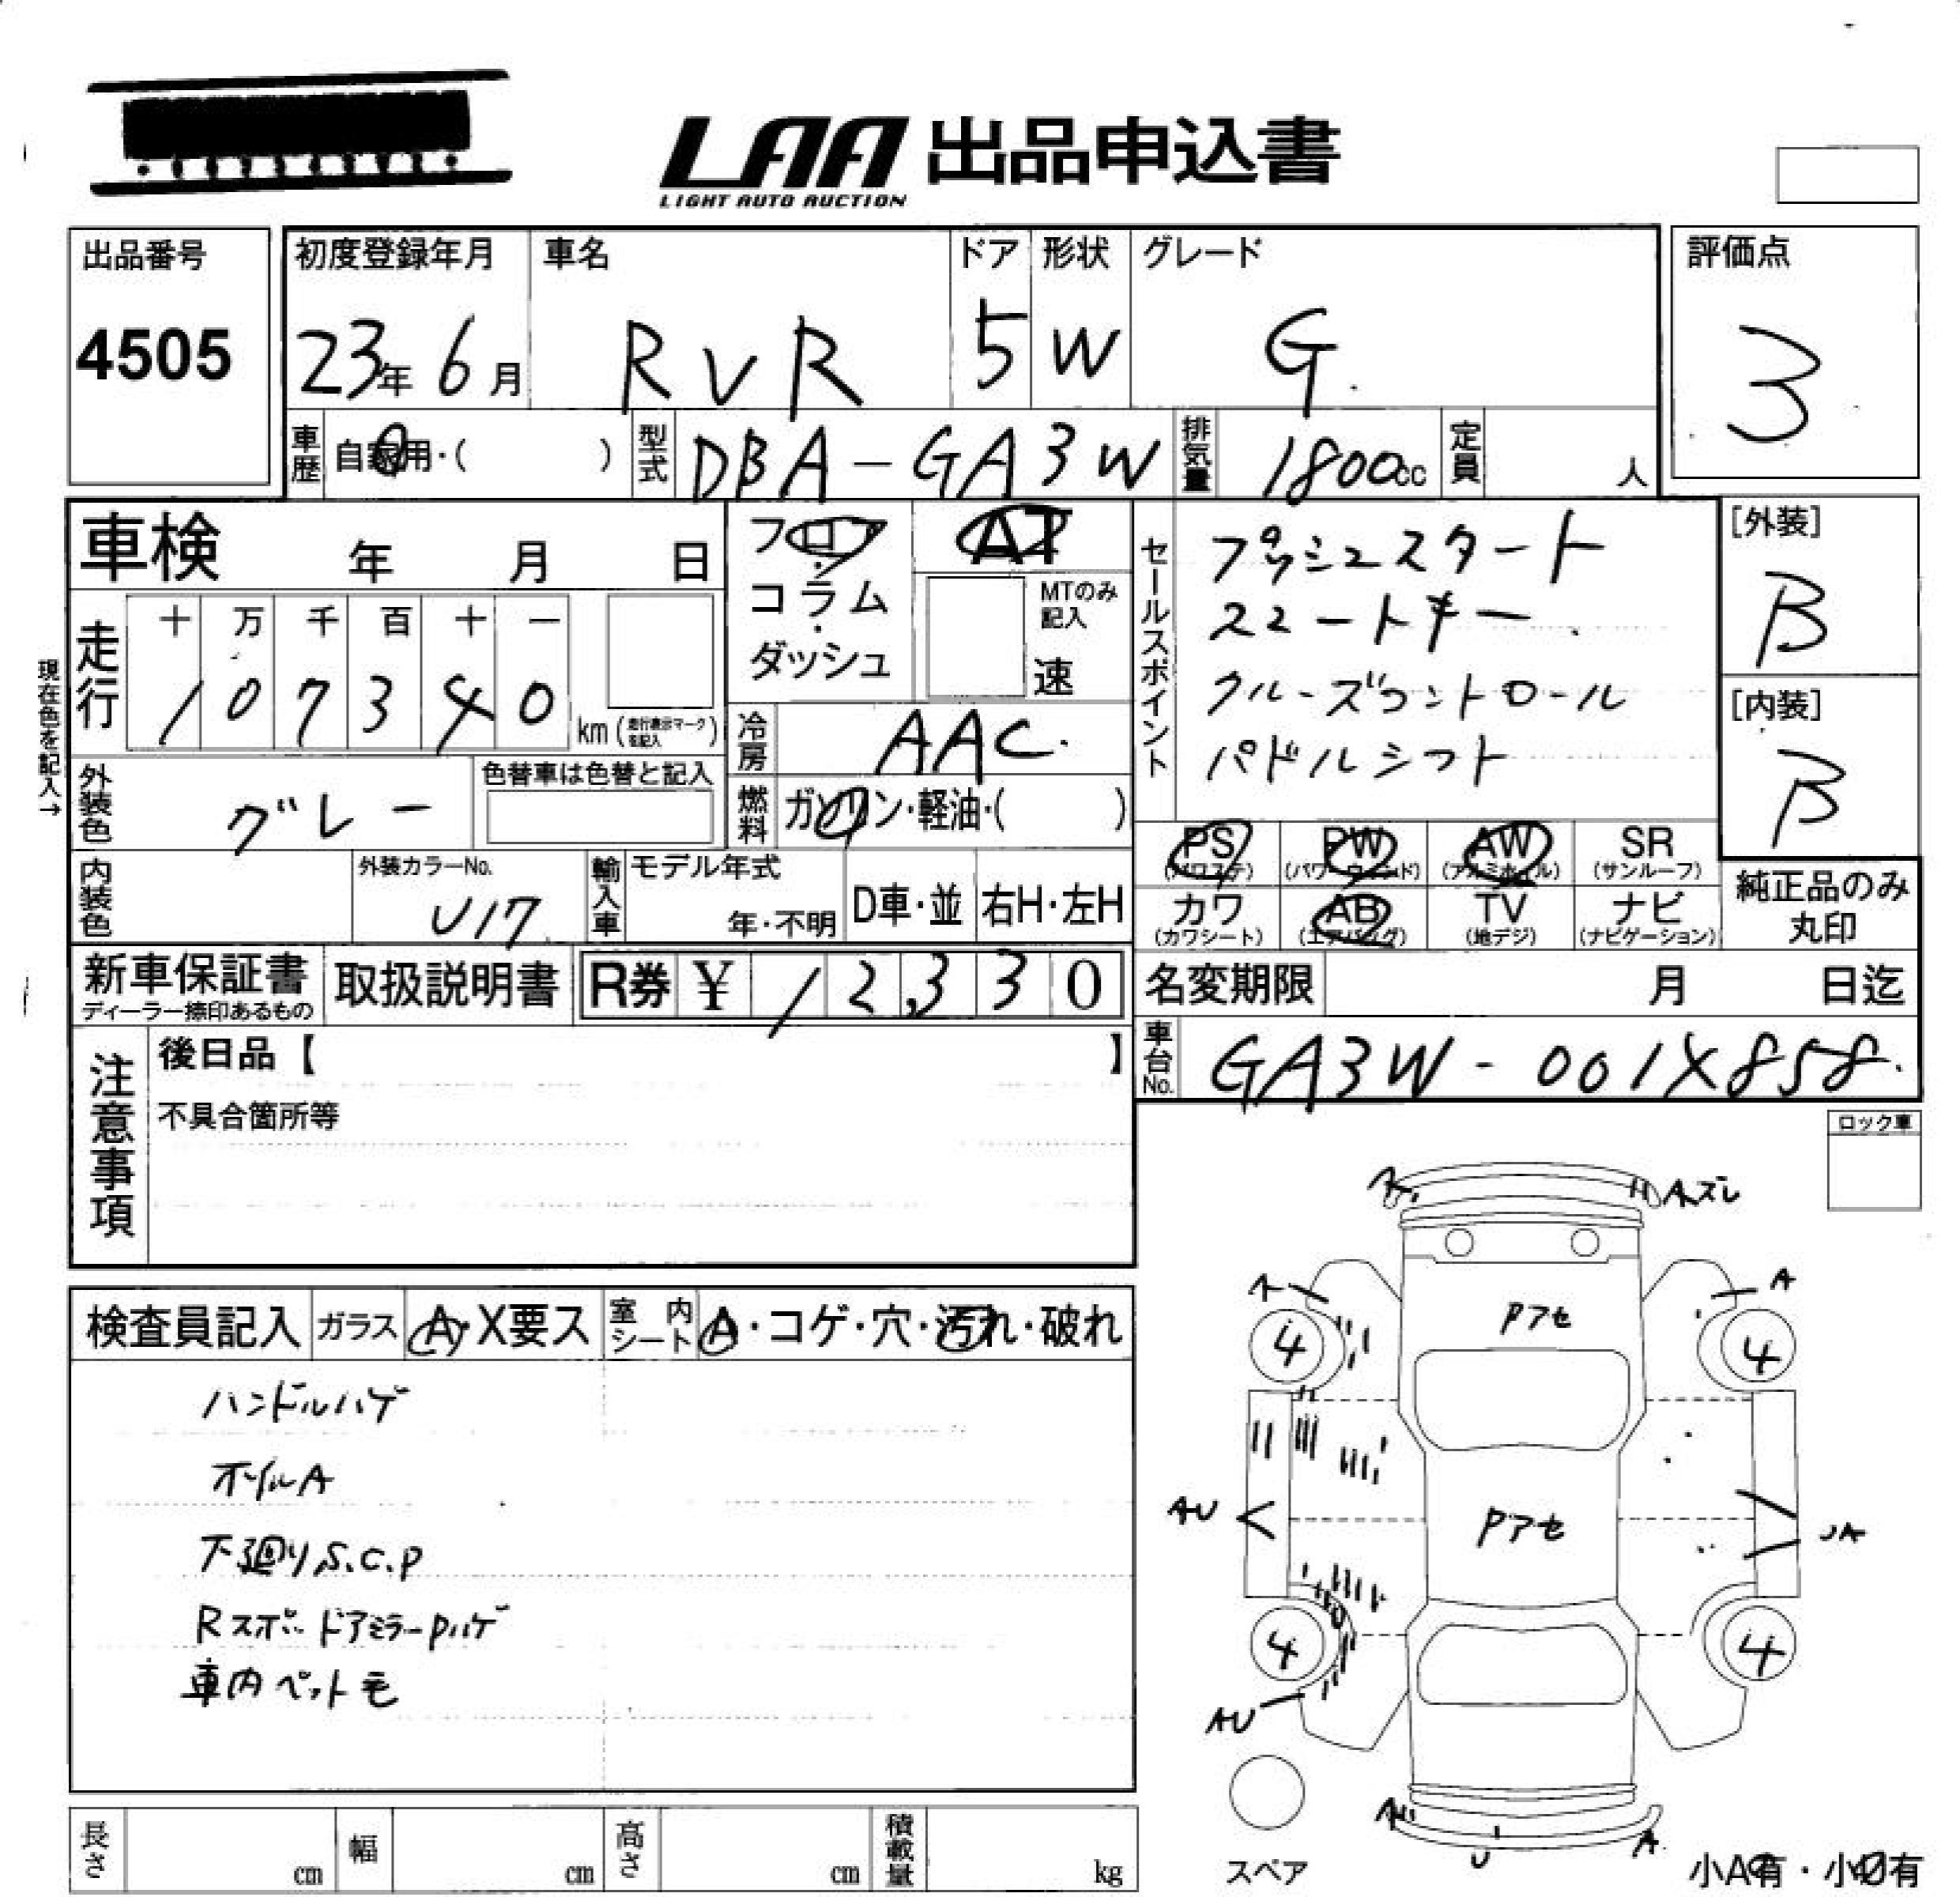 LAA 出品申込書
LIGHT AUTO AUCTION
出品番号
4505
初度登録年月
23年 6月
車名
RVR
ドア
5
形状
W
グレード
G
評価点
3
車歴
自家用・( )
型式
DBA-GA3W
排気量
1800cc
定員
人
車検 年 月 日
フロア・コラム・ダッシュ
AT
MTのみ記入
速
セールスポイント
プッシュスタート
スマートキー
クルーズコントロール
パドルシフト
[外装]
B
[内装]
B
現在色を記入→
走行
十 万 千 百 十 一
1 0 7 3 4 0
km (走行表示マークを記入)
冷房
AAC
外装色
グレー
色替車は色替と記入
燃料
ガソリン・軽油・( )
PS (パワステ)
PW (パワーウィンド)
AW (アルミホイル)
SR (サンルーフ)
カワ (カワシート)
AB (エアバッグ)
TV (地デジ)
ナビ (ナビゲーション)
純正品のみ
丸印
内装色
外装カラーNo.
U17
輸入車
モデル年式
年・不明
D車・並
右H・左H
新車保証書
ディーラー捺印あるもの
取扱説明書
R券 ¥ 12,330
名変期限 月 日迄
車台No.
GA3W-001X858
注意事項
後日品【 】
不具合箇所等
ロック車
検査員記入
ガラス
A・X要ス
室内シート
A・コゲ・穴・汚れ・破れ
ハンドルハゲ
ホイルA
下廻りS.C.P
Rスポ.ドアミラーPハゲ
車内ペット毛
A
Aズレ
A
A
Pアセ
4
4
AU
Pアセ
UA
4
4
AU
A
U
A
スペア
小A有・小U有
長さ cm
幅 cm
高さ cm
積載量 kg